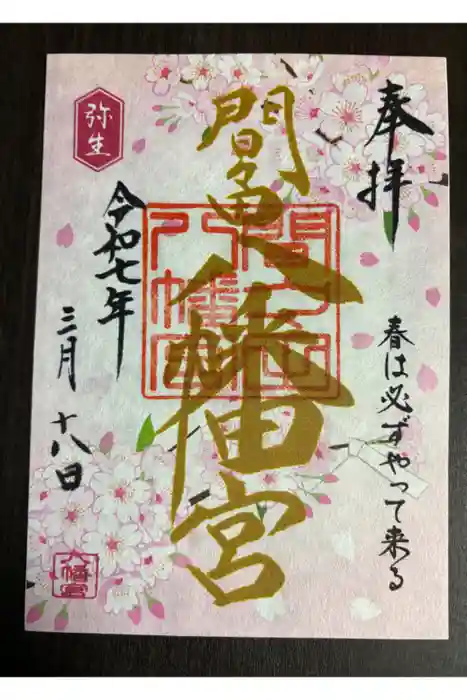 奉拝
春は必ずやって来る
間々田八幡宮
間々田
八幡宮
弥生
令和七年
三月十八日
八幡宮